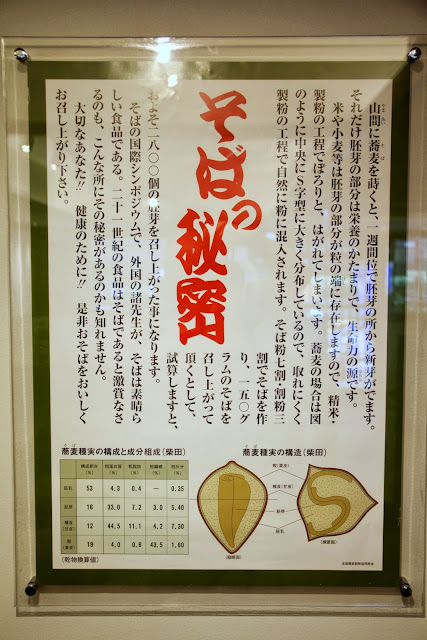 そばの秘密
山間に蕎麦を蒔くと、一週間位で胚芽の所から新芽がでます。
それだけ胚芽の部分は栄養のかたまりで、生命力の源です。
米や小麦等は胚芽の部分が粒の端に存在しますので、精米・
製粉の工程でぽろりと、はがれてしまいます。蕎麦の場合は図
のように中央にS字型に大きく分布しているので、取れにくく
製粉の工程で自然に粉に混入されます。そば粉七割・割粉三
割でそばを作
り、一五〇グ
ラムのそばを
召し上がって
頂くとして、
試算しますと、
およそ二八〇〇個の胚芽を召し上がった事になります。
そばの国際シンポジウムで、外国の諸先生が、そばは素晴ら
しい食品である。二十一世紀の食品はそばであると激賞なさ
るのも、こんな所にその秘密があるのかも知れません。
大切なあなた!! 健康のために!! 是非おそばをおいしく
お召し上がり下さい。
蕎麦種実の構成と成分組成(柴田)
胚乳 53 4,3 0,4 — 0,35
胚芽 16 33,0 7,2 3,0 5,40
種皮(甘皮) 12 44,5 11,1 4,2 7,30
殻(果皮) 19 4,0 0,8 43,5 1,60
(乾物換算値)
蕎麦種実の構造(柴田)
殻(果皮)
種皮(甘皮)
胚芽
胚乳
(縦断面)
(横断面)